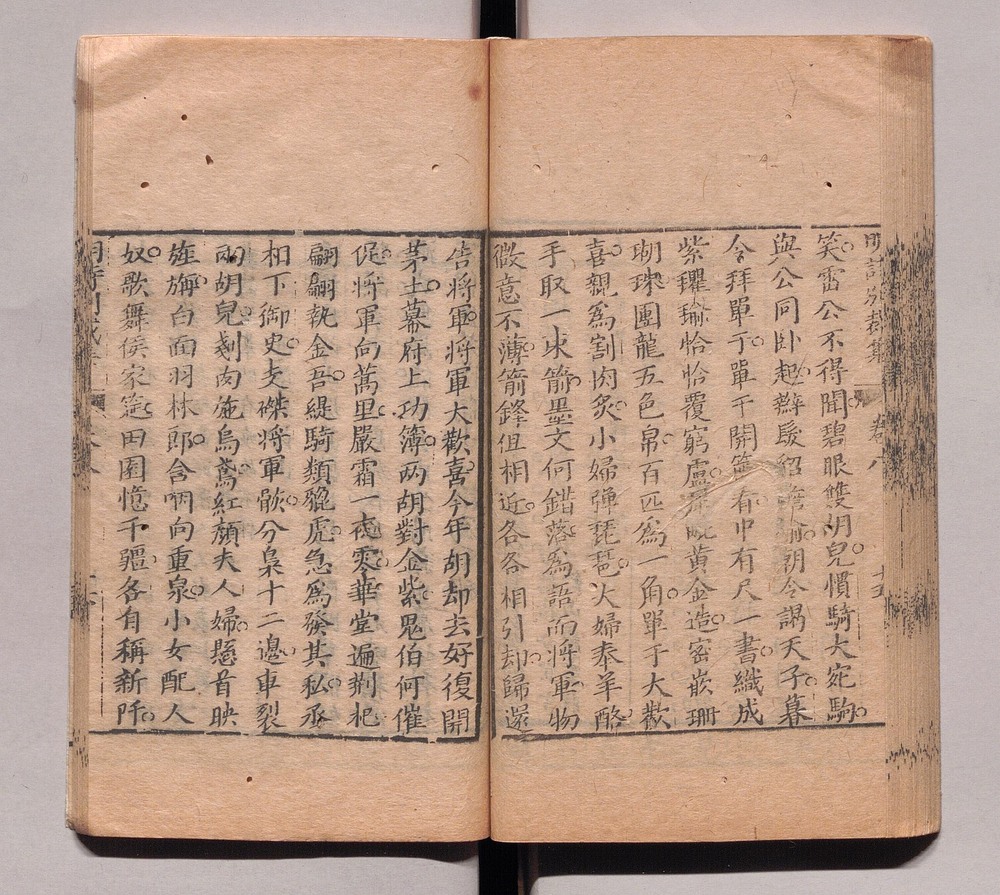 明詩別裁集 卷八 十五
笑雷公不得聞碧眼雙胡兒慣騎大宛駒
與公同卧起辮髮紹 朝令謁天子暮
令拜單于單于開筵看中有尺一書織成
紫罽瑜恰恰覆穹廬 黃金造密嵌珊
瑚珠團龍五色帛百匹爲一角單于大歡
喜親爲割肉炙小婦彈琵琶大婦奉羊酪
手取一束箭墨文何錯落爲語而將軍物
微意不薄箭鋒但相近各各相引却歸還
告將軍將軍大歡喜今年胡却去好復開
茅土幕府上功簿兩胡對金紫鬼伯何催
促將軍向蒿里嚴霜一夜零華堂遍荆杞
翩翩執金吾緹騎類貔虎急爲發其私丞
相下御史支磔將軍骸分梟十二邊車裂
兩胡兒剮肉施烏鳶紅顏夫人婦懸首映
旌旃白面羽林郎含啼向重泉小女配人
奴歌舞侯家筵田園憶千疆各有稱新阡